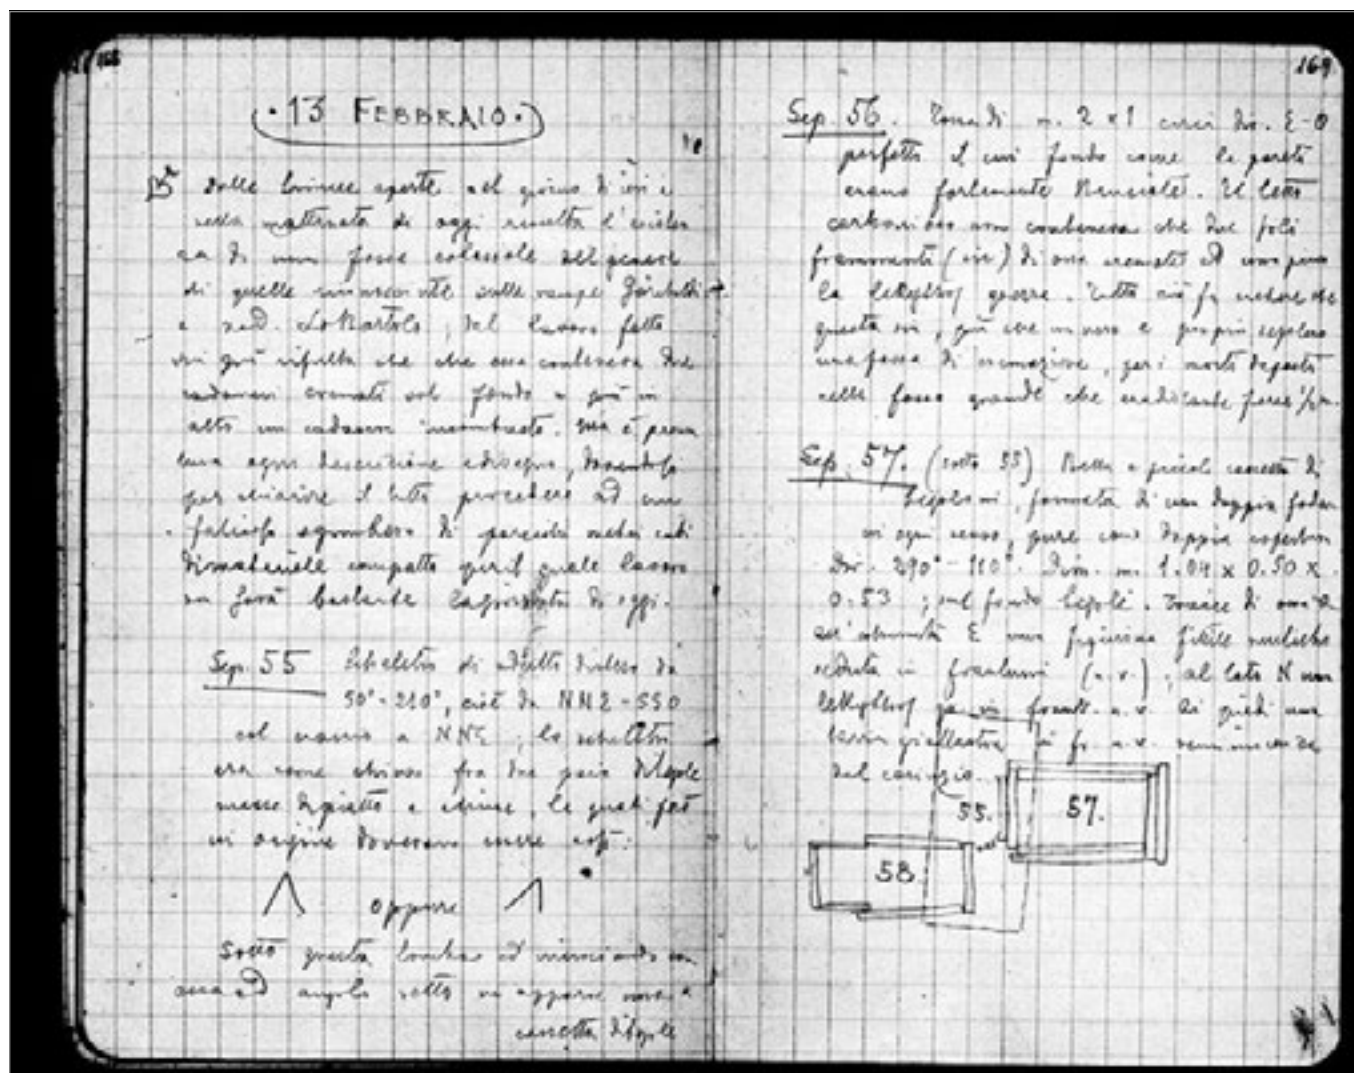 168
· 13 FEBBRAIO ·
Dalle trincee aperte nel giorno di ieri e
nella mattinata di oggi risulta l'esisten
za di una fossa colossale del genere
di quelle rinvenute nelle
e LoBartolo; dal lavoro fatto
sin qui risulta che che essa conteneva due
cadaveri cremati sul fondo e più in
alto un cadavere incombusto. Ma è prema
tura ogni descrizione e disegno, dovendosi
per chiarire il tutto procedere ad un
faticoso sgombero di parecchi metri cubi
di materiale compatto per il quale lavoro
non sarà bastante la giornata di oggi.
Sep. 55 Scheletro di adulto diretto da
50°-210°, cioè da NNE-SSO
col cranio a NNE; lo scheletro
era come chiuso fra due paia di tegole
messe di piatto e chiuse, le quali forse
in origine dovevano essere così:
oppure
Sotto questa tomba ed incrociando con
essa ad angolo retto ne apparve una
cassetta di tegole
169
Sep. 56. Fossa di m. 2 x 1 circa dir. E-O
perfetta il cui fondo come le pareti
erano fortemente bruciate. Il letto
carbonioso non conteneva che due soli
frammenti (sic) di ossa cremate ed una
la lekythos. Tutto ciò fa credere che
questa sia, più che un vero e proprio sepolcro
una fossa di cremazione, per i morti deposti
nella fossa grande che
Sep. 57. (sotto 55) Bella e piccola cassetta di
tegoloni, formata di una doppia fodera
in ogni senso, pure con doppia copertura
Dir. 290°-110°. Dim. m. 1.04 x 0.50 x
0.53; sul fondo tegole. Tracce di ossa
all'estremità E una figurina fittile muliebre
seduta in frantumi (n.v.); al lato N una
lekythos in framm. n.v. Ai piedi una
giallastra in fr. n.v.
del corinzio.
55.
57.
58